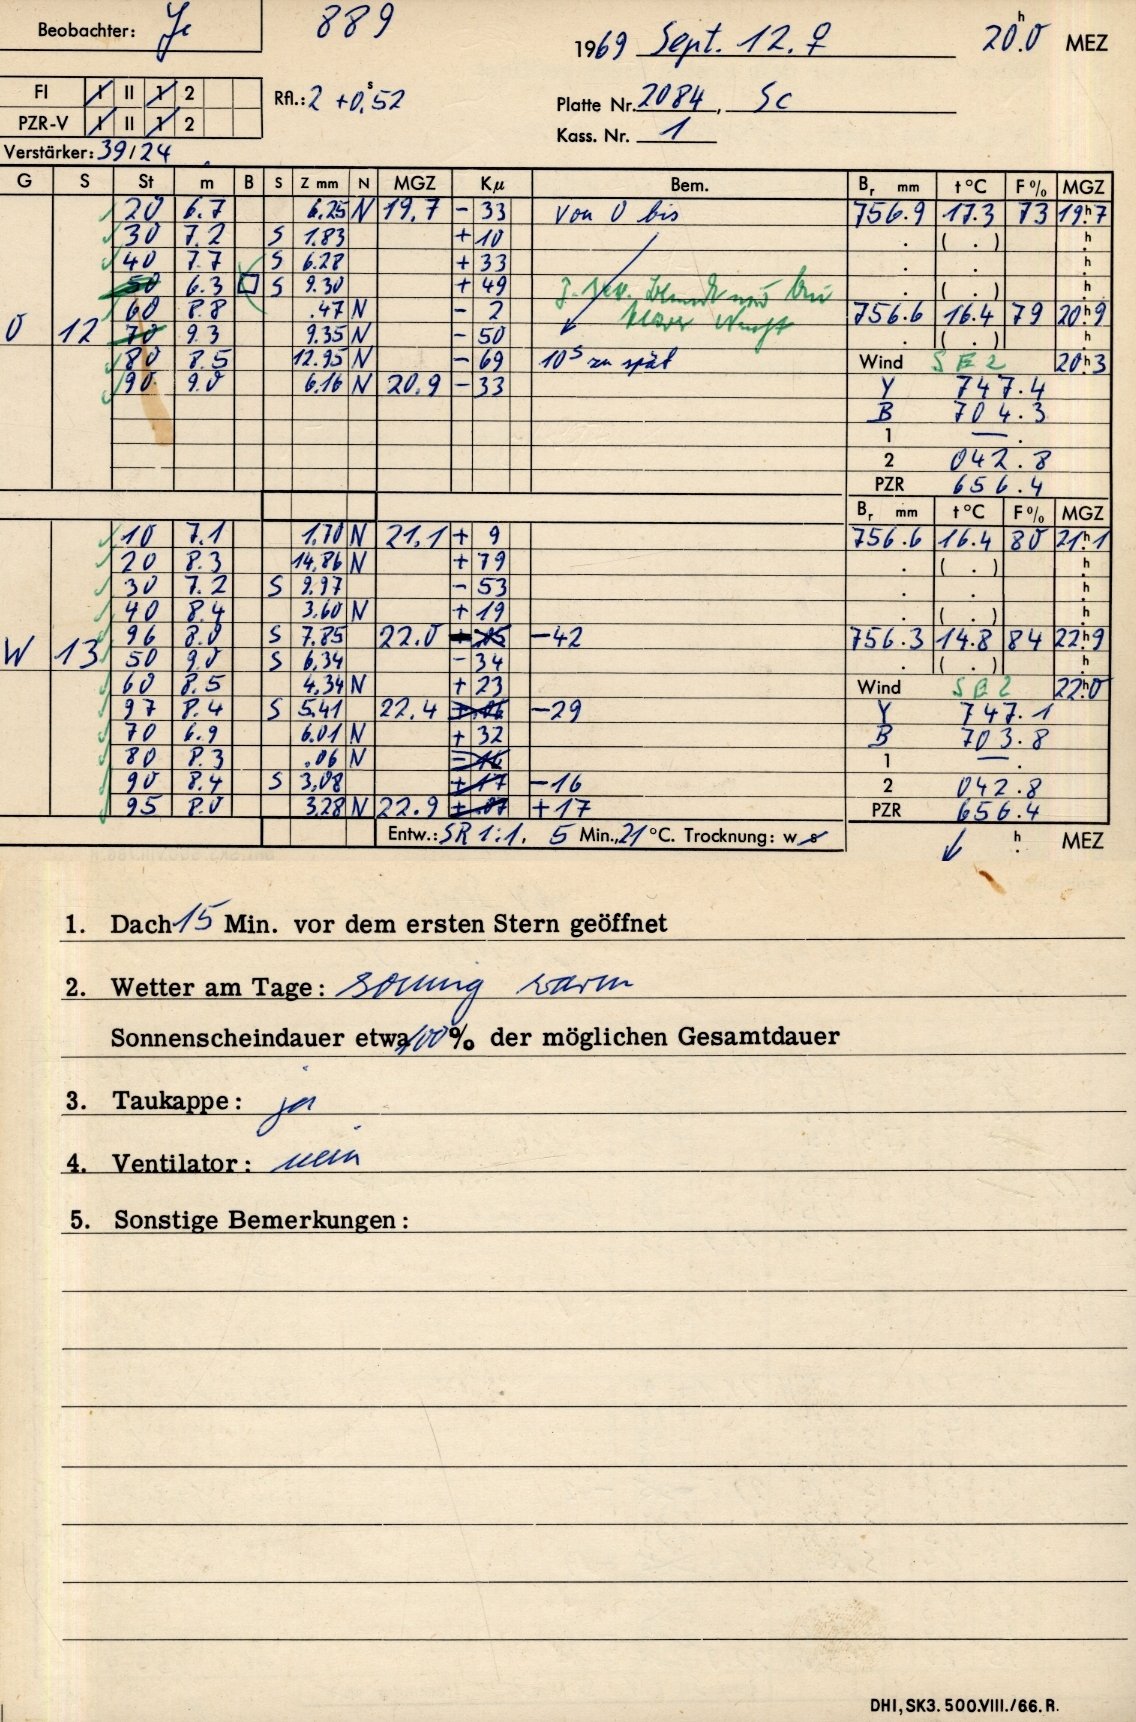 Beobachter: Je 889 1969 Sept. 12. ♀ 20.0 h MEZ
FI I II 1 2 Rfl.: 2 +0,52 s Platte Nr. 2084, Sc
PZR-V I II 1 2 Kass. Nr. 1
Verstärker: 39/24
G S St m B S Z mm N MGZ Kμ Bem. Br mm t °C F % MGZ
20 6.7 6.25 N 19.7 - 33 von 0 bis 756.9 17.3 73 19.h7
30 7.2 S 1.83 + 10 . ( . ) .h
40 7.7 S 6.28 + 33 . . .h
50 6.3 □ S 9.30 + 49 . ( . ) .h
60 8.8 .47 N - 2 756.6 16.4 79 20.h9
O 12 70 9.3 9.35 N - 50 . ( . ) .h
80 8.5 12.95 N - 69 10s zu spät Wind SE 2 20.h3
90 9.0 6.16 N 20.9 - 33 Y 747.4
B 704.3
1 — .
2 042.8
PZR 656.4
Br mm t °C F % MGZ
10 7.1 1.70 N 21.1 + 9 756.6 16.4 80 21.h1
20 8.3 14.86 N + 79 . ( . ) .h
30 7.2 S 9.97 - 53 . . .h
40 8.4 3.60 N + 19 . ( . ) .h
96 8.0 S 7.85 22.0 -42 756.3 14.8 84 22.h9
W 13 50 9.0 S 6.34 - 34 . ( . ) .h
60 8.5 4.34 N + 23 Wind SE 2 22.h0
97 8.4 S 5.41 22.4 -29 Y 747.1
70 6.9 6.01 N + 32 B 703.8
80 8.3 .06 N - 16 1 — .
90 8.4 S 3.08 + 17 -16 2 042.8
95 8.0 3.28 N 22.9 +17 PZR 656.4
Entw.: SR 1:1. 5 Min., 21 °C. Trocknung: w s .h MEZ
1. Dach 15 Min. vor dem ersten Stern geöffnet
2. Wetter am Tage: sonnig warm
Sonnenscheindauer etwa 100 % der möglichen Gesamtdauer
3. Taukappe: ja
4. Ventilator: nein
5. Sonstige Bemerkungen:
DHI, SK3. 500.VIII./66. R.